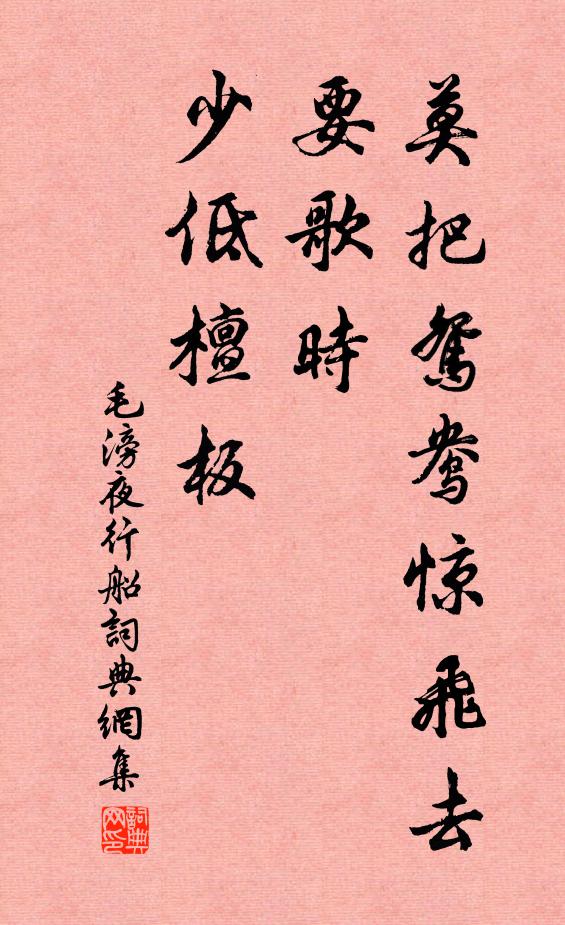 莫把鸳鸯惊飛去
要歌時
少低檀板
毛滂夜行船詞典網集
詞典网印